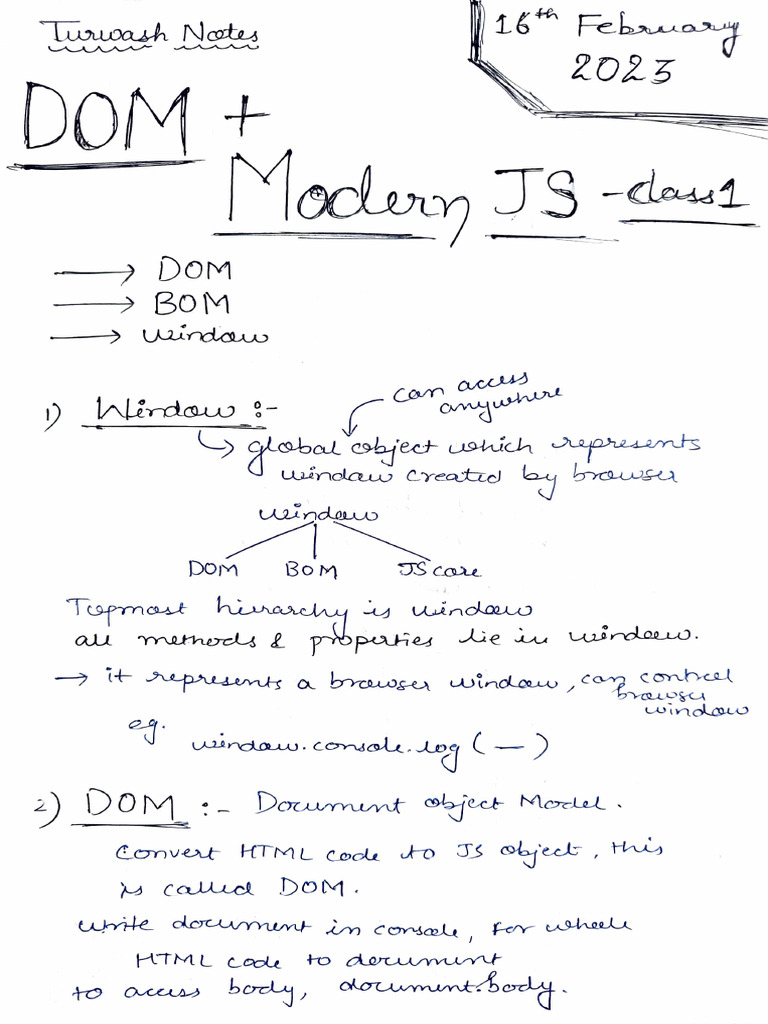 Turwash Notes
16th February
2023
DOM +
Modern JS - class 1
→ DOM
→ BOM
→ window
1) Window :-
can access
anywhere
↳ global object which represents
window created by browser
window
DOM BOM JS core
Topmost hierarchy is window
all methods & properties lie in window.
→ it represents a browser window, can control
browser
window
eg.
window.console.log ( — )
2) DOM :- Document object Model.
Convert HTML code to JS object, this
is called DOM.
write document in console, for whole
HTML code to document
to access body, document.body.